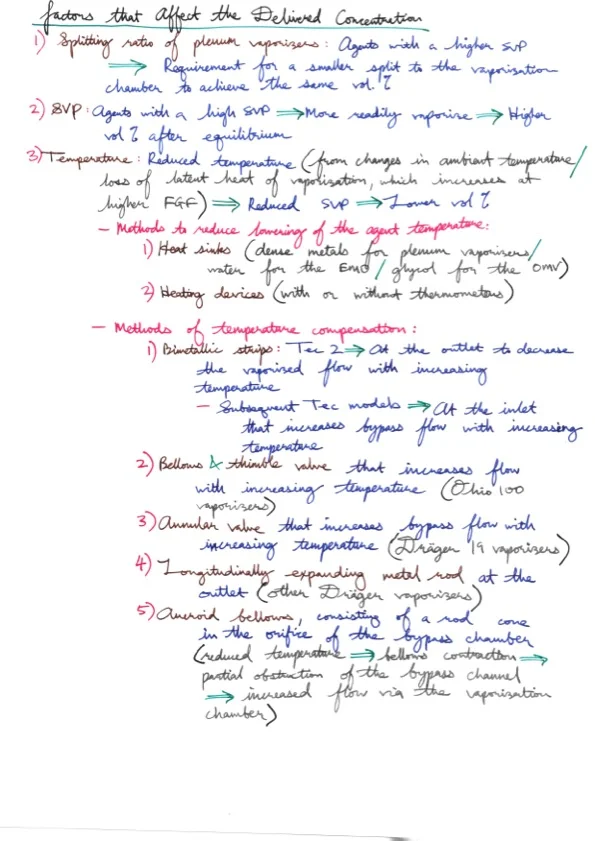 Factors that Affect the Delivered Concentration
1) Splitting ratio of plenum vaporizers: Agents with a higher SVP
⟹ Requirement for a smaller split to the vaporization
chamber to achieve the same vol. %
2) SVP: Agents with a high SVP ⟹ More readily vaporize ⟹ Higher
vol % after equilibrium
3) Temperature: Reduced temperature (from changes in ambient temperature/
loss of latent heat of vaporization, which increases at
higher FGF) ⟹ Reduced SVP ⟹ Lower vol %
- Methods to reduce lowering of the agent temperature:
1) Heat sinks (dense metals for plenum vaporizers/
water for the EMO/glycol for the OMV)
2) Heating devices (with or without thermometers)
- Methods of temperature compensation:
1) Bimetallic strips: Tec 2 ⟹ At the outlet to decrease
the vaporized flow with increasing
temperature
- Subsequent Tec models ⟹ At the inlet
that increases bypass flow with increasing
temperature
2) Bellows & thimble valve that increases flow
with increasing temperature (Ohio 100
vaporizers)
3) Annular valve that increases bypass flow with
increasing temperature (Dräger 19 vaporizers)
4) Longitudinally expanding metal rod at the
outlet (other Dräger vaporizers)
5) Aneroid bellows, consisting of a rod cone
in the orifice of the bypass chamber
(reduced temperature ⟹ bellows contraction ⟹
partial obstruction of the bypass channel
⟹ increased flow via the vaporization
chamber)